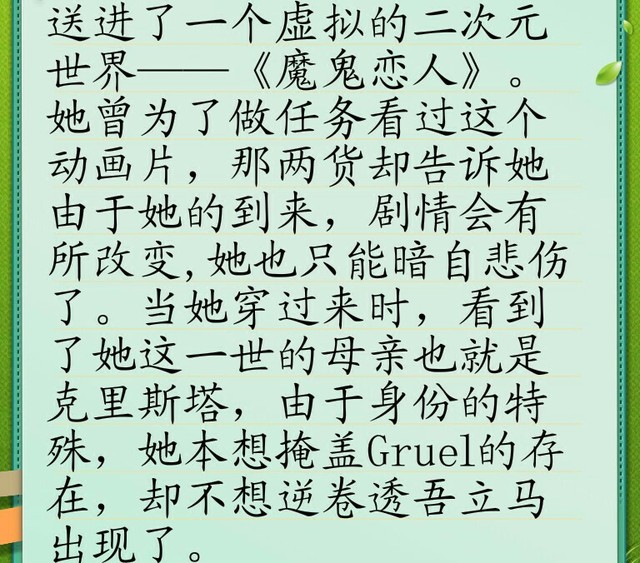 送进了一个虚拟的二次元
世界——《魔鬼恋人》。
她曾为了做任务看过这个
动画片，那两货却告诉她
由于她的到来，剧情会有
所改变,她也只能暗自悲伤
了。当她穿过来时，看到
了她这一世的母亲也就是
克里斯塔，由于身份的特
殊，她本想掩盖Gruel的存
在，却不想逆卷透吾立马
出现了。